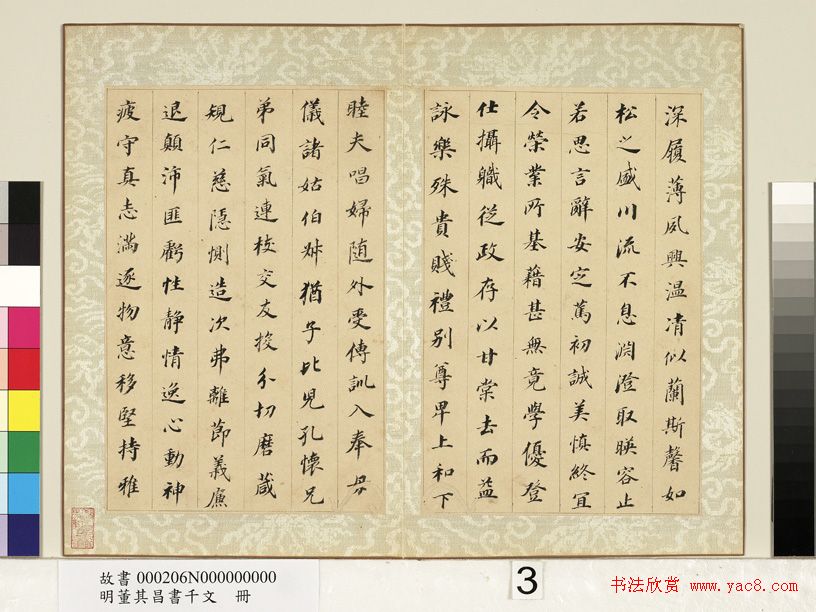 深履薄夙興温凊似蘭斯馨如
松之盛川流不息淵澄取暎容止
若思言辭安定篤初誠美慎終宜
令榮業所基藉甚無竟學優登
仕攝職從政存以甘棠去而益
詠樂殊貴賤禮別尊卑上和下
睦夫唱婦随外受傅訓入奉母
儀諸姑伯叔猶子比兒孔懷兄
弟同氣連枝交友投分切磨葴
規仁慈隱惻造次弗離節義廉
退顛沛匪虧性静情逸心動神
疲守真志滿逐物意移堅持雅
故書 000206N000000000
明董其昌書千文 冊
3
书法欣赏 www.yac8.com